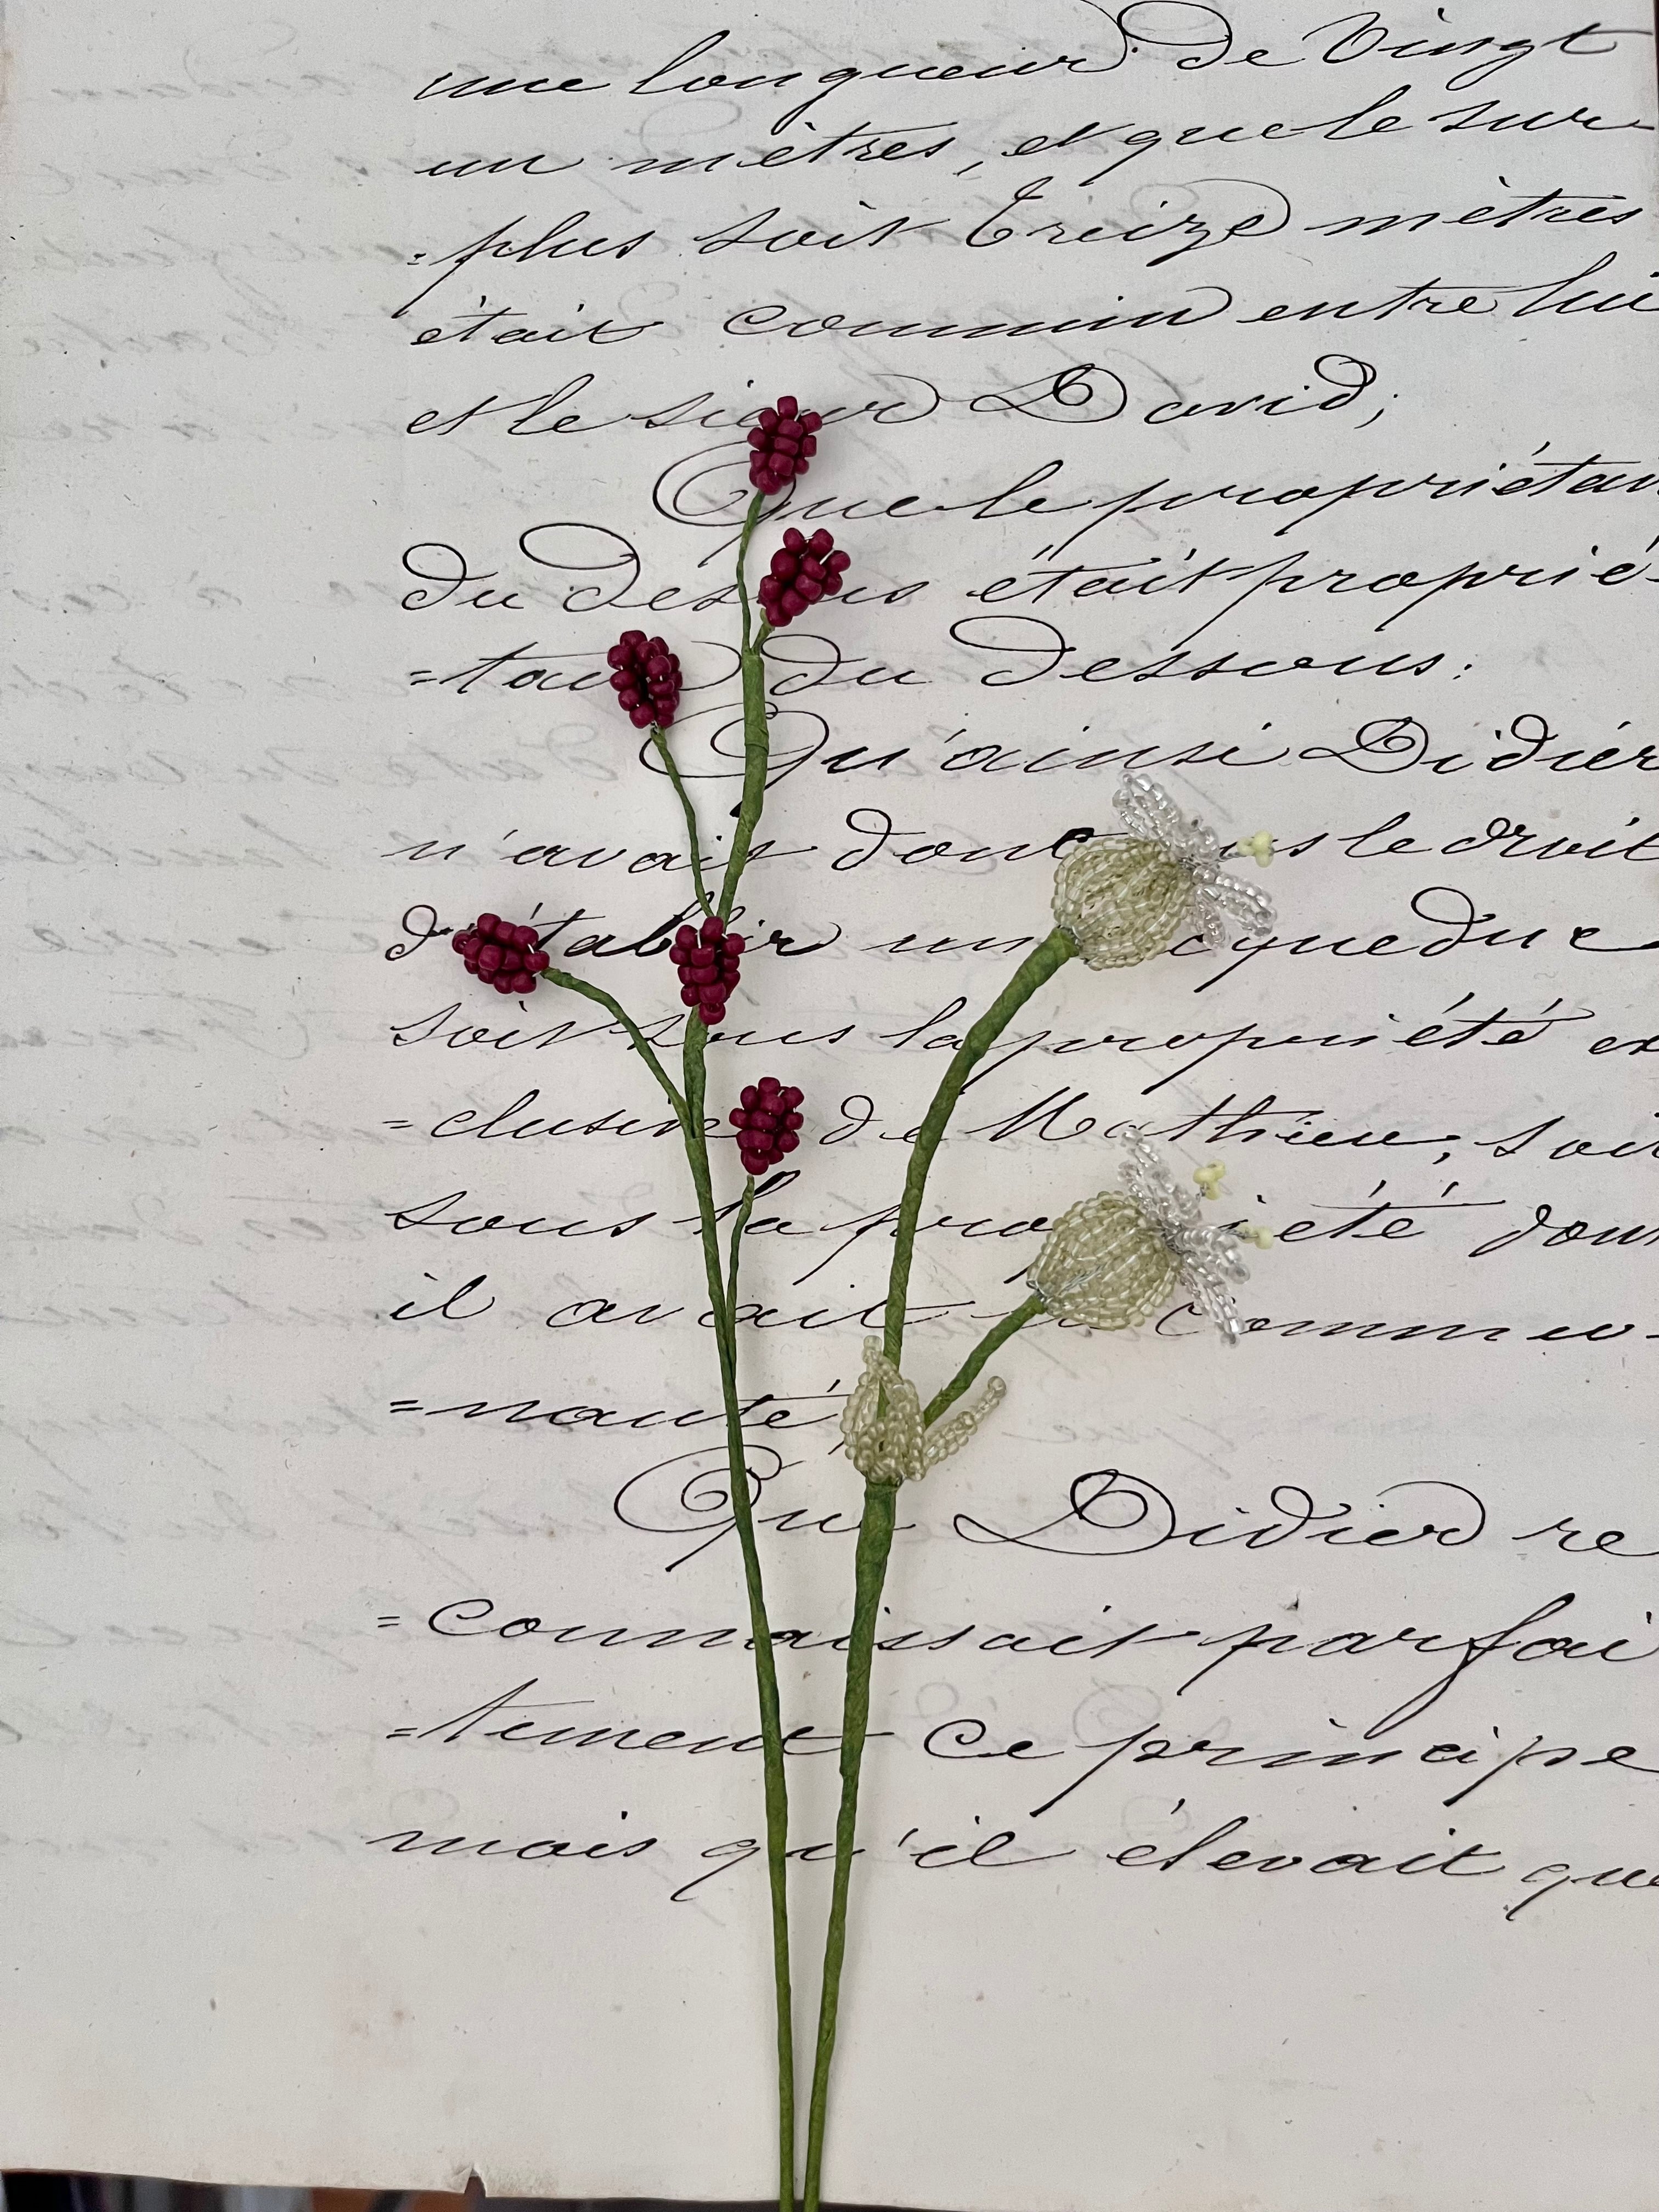 une longueur de Vingt
un mètres, et que le sur
=plus soit Treize mètres
était commun entre lui
et le sieur David;
Que le propriétai
du dessus était proprié=
=taire du dessous:
Qu'ainsi Didier
n'avait donc pas le droit
d'établir un aqueduc
soit sous la propriété ex
=clusive de Mathieu, soit
sous la propriété dont
il avait la commu=
=nauté,
Que Didier re
=connaissait parfai
=tement ce principe
mais qu'il élevait que